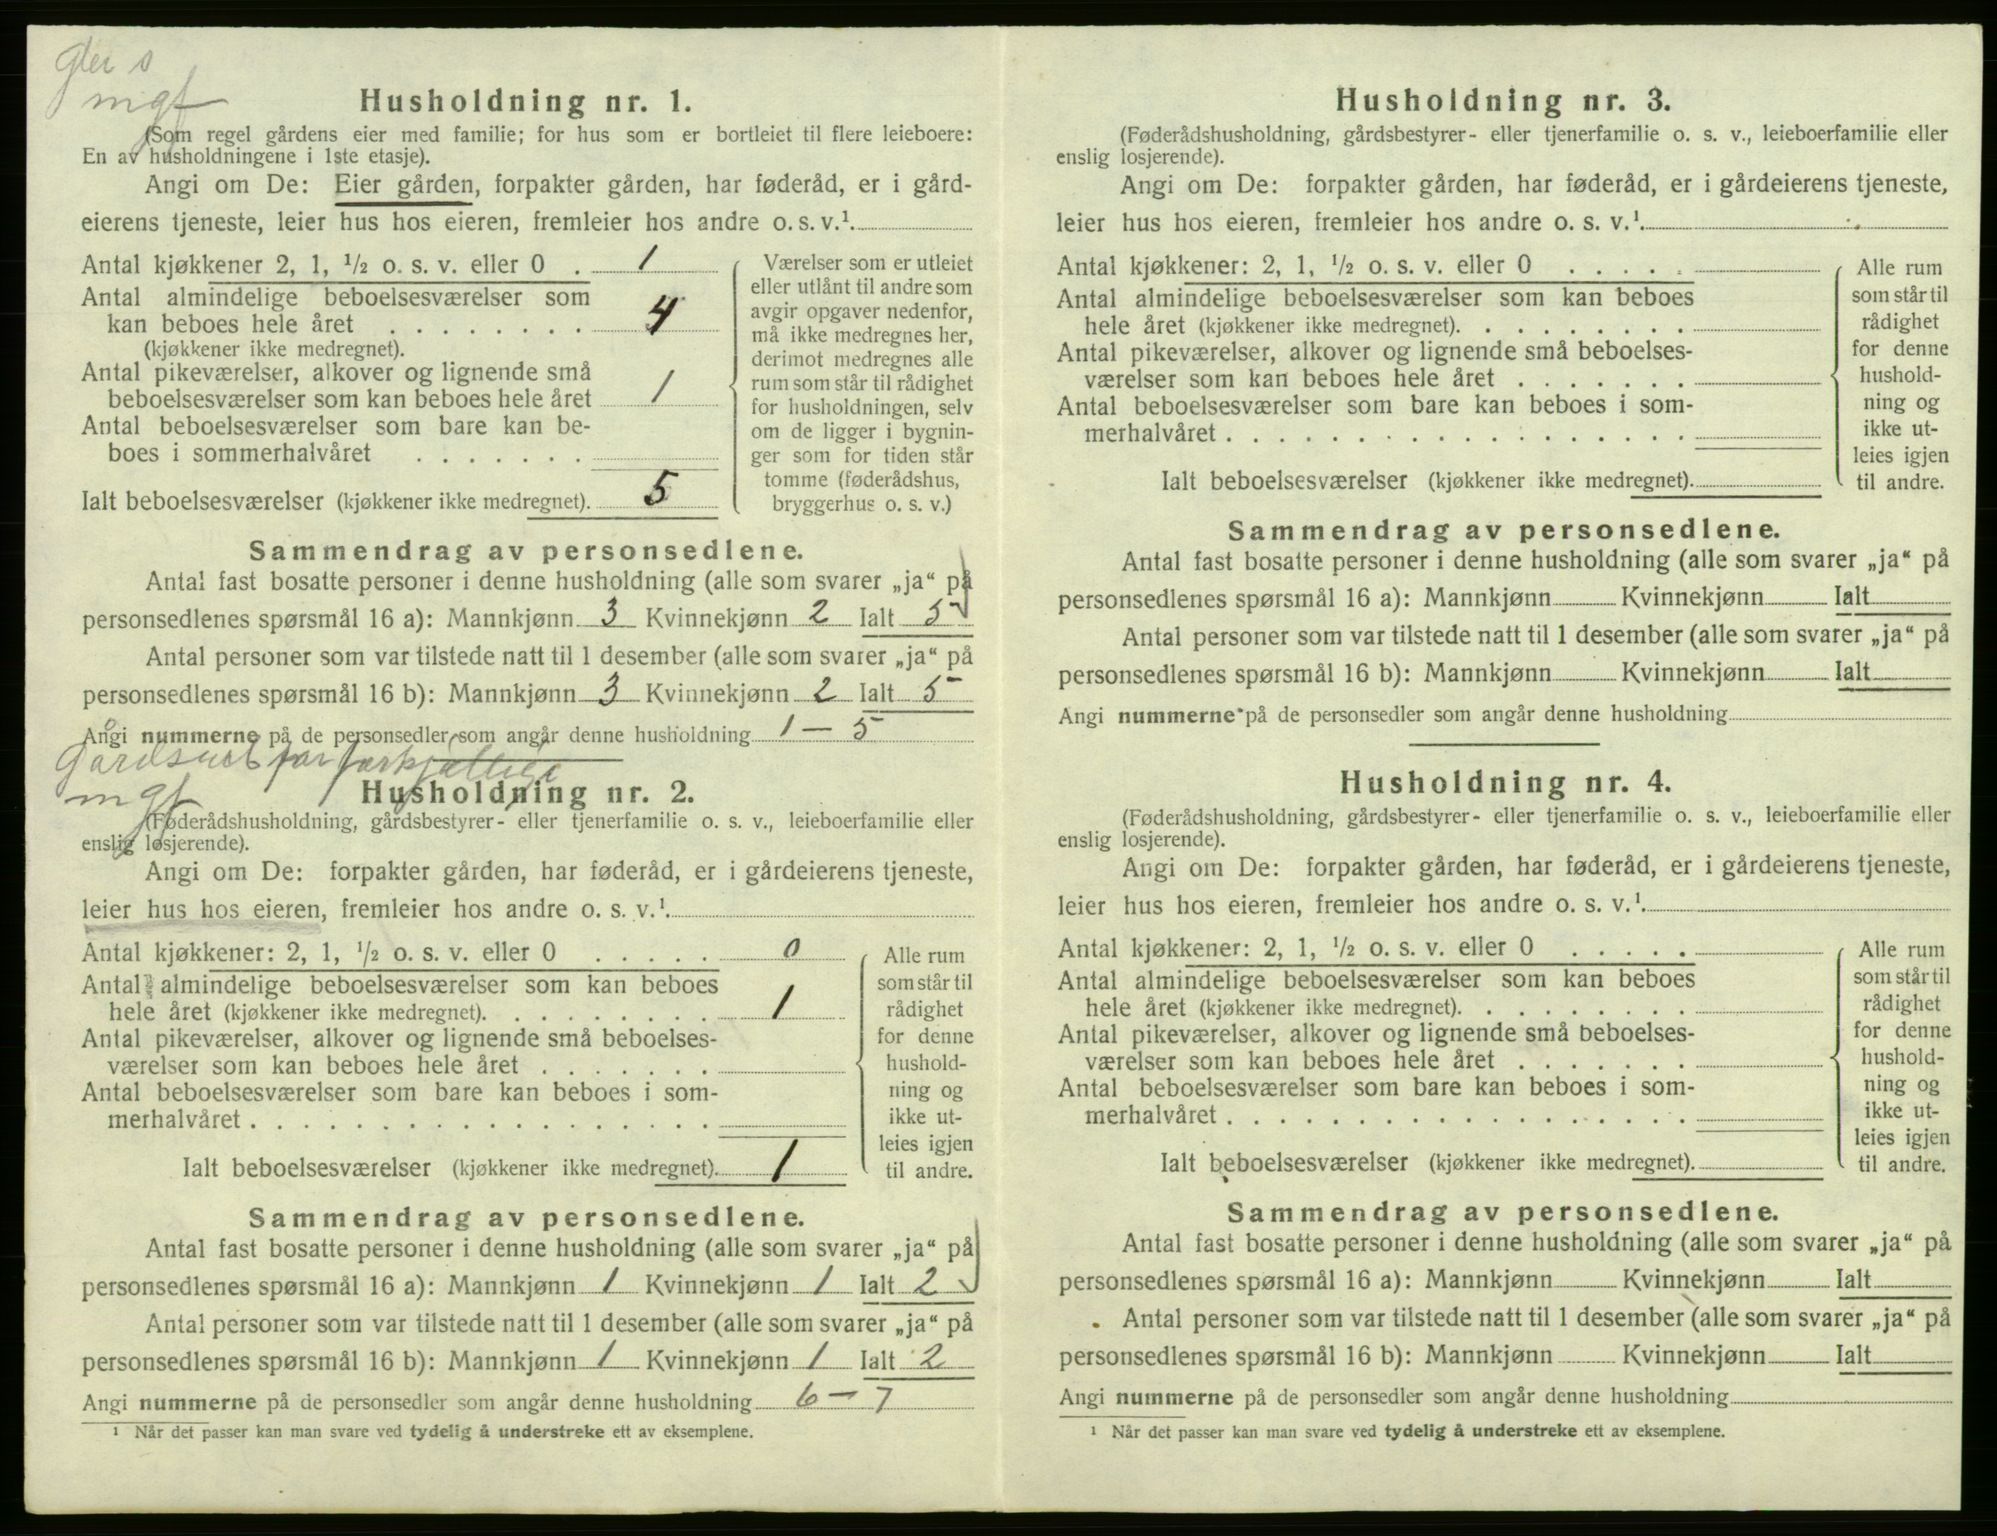 mgf
Husholdning nr. 1.
(Som regel gårdens eier med familie; for hus som er bortleiet til flere leieboere:
En av husholdningene i 1ste etasje).
Angi om De: Eier gården, forpakter gården, har føderåd, er i gård-
eierens tjeneste, leier hus hos eieren, fremleier hos andre o. s. v.¹
Antal kjøkkener 2, 1, ½ o. s. v. eller 0 . 1
Antal almindelige beboelsesværelser som
kan beboes hele året . . . . . . . . 4
(kjøkkener ikke medregnet).
Antal pikeværelser, alkover og lignende små
beboelsesværelser som kan beboes hele året 1
Antal beboelsesværelser som bare kan be-
boes i sommerhalvåret . . . . . . .
Ialt beboelsesværelser (kjøkkener ikke medregnet). 5
Værelser som er utleiet
eller utlånt til andre som
avgir opgaver nedenfor,
må ikke medregnes her,
derimot medregnes alle
rum som står til rådighet
for husholdningen, selv
om de ligger i bygnin-
ger som for tiden står
tomme (føderådshus,
bryggerhus o. s. v.)
Sammendrag av personsedlene.
Antal fast bosatte personer i denne husholdning (alle som svarer „ja“ på
personsedlenes spørsmål 16 a): Mannkjønn 3 Kvinnekjønn 2 Ialt 5
Antal personer som var tilstede natt til 1 desember (alle som svarer „ja“ på
personsedlenes spørsmål 16 b): Mannkjønn 3 Kvinnekjønn 2 Ialt 5
Angi nummerne på de personsedler som angår denne husholdning 1 — 5
mgf
Husholdning nr. 2.
(Føderådshusholdning, gårdsbestyrer- eller tjenerfamilie o. s. v., leieboerfamilie eller
enslig losjerende).
Angi om De: forpakter gården, har føderåd, er i gårdeierens tjeneste,
leier hus hos eieren, fremleier hos andre o. s. v.¹
Antal kjøkkener: 2, 1, ½ o. s. v. eller 0 . . . . . 0
Antal almindelige beboelsesværelser som kan beboes
hele året (kjøkkener ikke medregnet). . . . . . . . . 1
Antal pikeværelser, alkover og lignende små beboelses-
værelser som kan beboes hele året . . . . . . .
Antal beboelsesværelser som bare kan beboes i som-
merhalvåret . . . . . . . . . . . . . . . . .
Ialt beboelsesværelser (kjøkkener ikke medregnet). 1
Alle rum
som står til
rådighet
for denne
hushold-
ning og
ikke ut-
leies igjen
til andre.
Sammendrag av personsedlene.
Antal fast bosatte personer i denne husholdning (alle som svarer „ja“ på
personsedlenes spørsmål 16 a): Mannkjønn 1 Kvinnekjønn 1 Ialt 2
Antal personer som var tilstede natt til 1 desember (alle som svarer „ja“ på
personsedlenes spørsmål 16 b): Mannkjønn 1 Kvinnekjønn 1 Ialt 2
Angi nummerne på de personsedler som angår denne husholdning 6 — 7
¹ Når det passer kan man svare ved tydelig å understreke ett av eksemplene.
Husholdning nr. 3.
(Føderådshusholdning, gårdsbestyrer- eller tjenerfamilie o. s. v., leieboerfamilie eller
enslig losjerende).
Angi om De: forpakter gården, har føderåd, er i gårdeierens tjeneste,
leier hus hos eieren, fremleier hos andre o. s. v.¹
Antal kjøkkener: 2, 1, ½ o. s. v. eller 0 . . . . .
Antal almindelige beboelsesværelser som kan beboes
hele året (kjøkkener ikke medregnet). . . . . . . . .
Antal pikeværelser, alkover og lignende små beboelses-
værelser som kan beboes hele året . . . . . . .
Antal beboelsesværelser som bare kan beboes i som-
merhalvåret . . . . . . . . . . . . . . . . .
Ialt beboelsesværelser (kjøkkener ikke medregnet).
Alle rum
som står til
rådighet
for denne
hushold-
ning og
ikke ut-
leies igjen
til andre.
Sammendrag av personsedlene.
Antal fast bosatte personer i denne husholdning (alle som svarer „ja“ på
personsedlenes spørsmål 16 a): Mannkjønn Kvinnekjønn Ialt
Antal personer som var tilstede natt til 1 desember (alle som svarer „ja“ på
personsedlenes spørsmål 16 b): Mannkjønn Kvinnekjønn Ialt
Angi nummerne på de personsedler som angår denne husholdning
Husholdning nr. 4.
(Føderådshusholdning, gårdsbestyrer- eller tjenerfamilie o. s. v., leieboerfamilie eller
enslig losjerende).
Angi om De: forpakter gården, har føderåd, er i gårdeierens tjeneste,
leier hus hos eieren, fremleier hos andre o. s. v.¹
Antal kjøkkener: 2, 1, ½ o. s. v. eller 0 . . . . .
Antal almindelige beboelsesværelser som kan beboes
hele året (kjøkkener ikke medregnet). . . . . . . . .
Antal pikeværelser, alkover og lignende små beboelses-
værelser som kan beboes hele året . . . . . . .
Antal beboelsesværelser som bare kan beboes i som-
merhalvåret . . . . . . . . . . . . . . . . .
Ialt beboelsesværelser (kjøkkener ikke medregnet).
Alle rum
som står til
rådighet
for denne
hushold-
ning og
ikke ut-
leies igjen
til andre.
Sammendrag av personsedlene.
Antal fast bosatte personer i denne husholdning (alle som svarer „ja“ på
personsedlenes spørsmål 16 a): Mannkjønn Kvinnekjønn Ialt
Antal personer som var tilstede natt til 1 desember (alle som svarer „ja“ på
personsedlenes spørsmål 16 b): Mannkjønn Kvinnekjønn Ialt
Angi nummerne på de personsedler som angår denne husholdning
¹ Når det passer kan man svare ved tydelig å understreke ett av eksemplene.